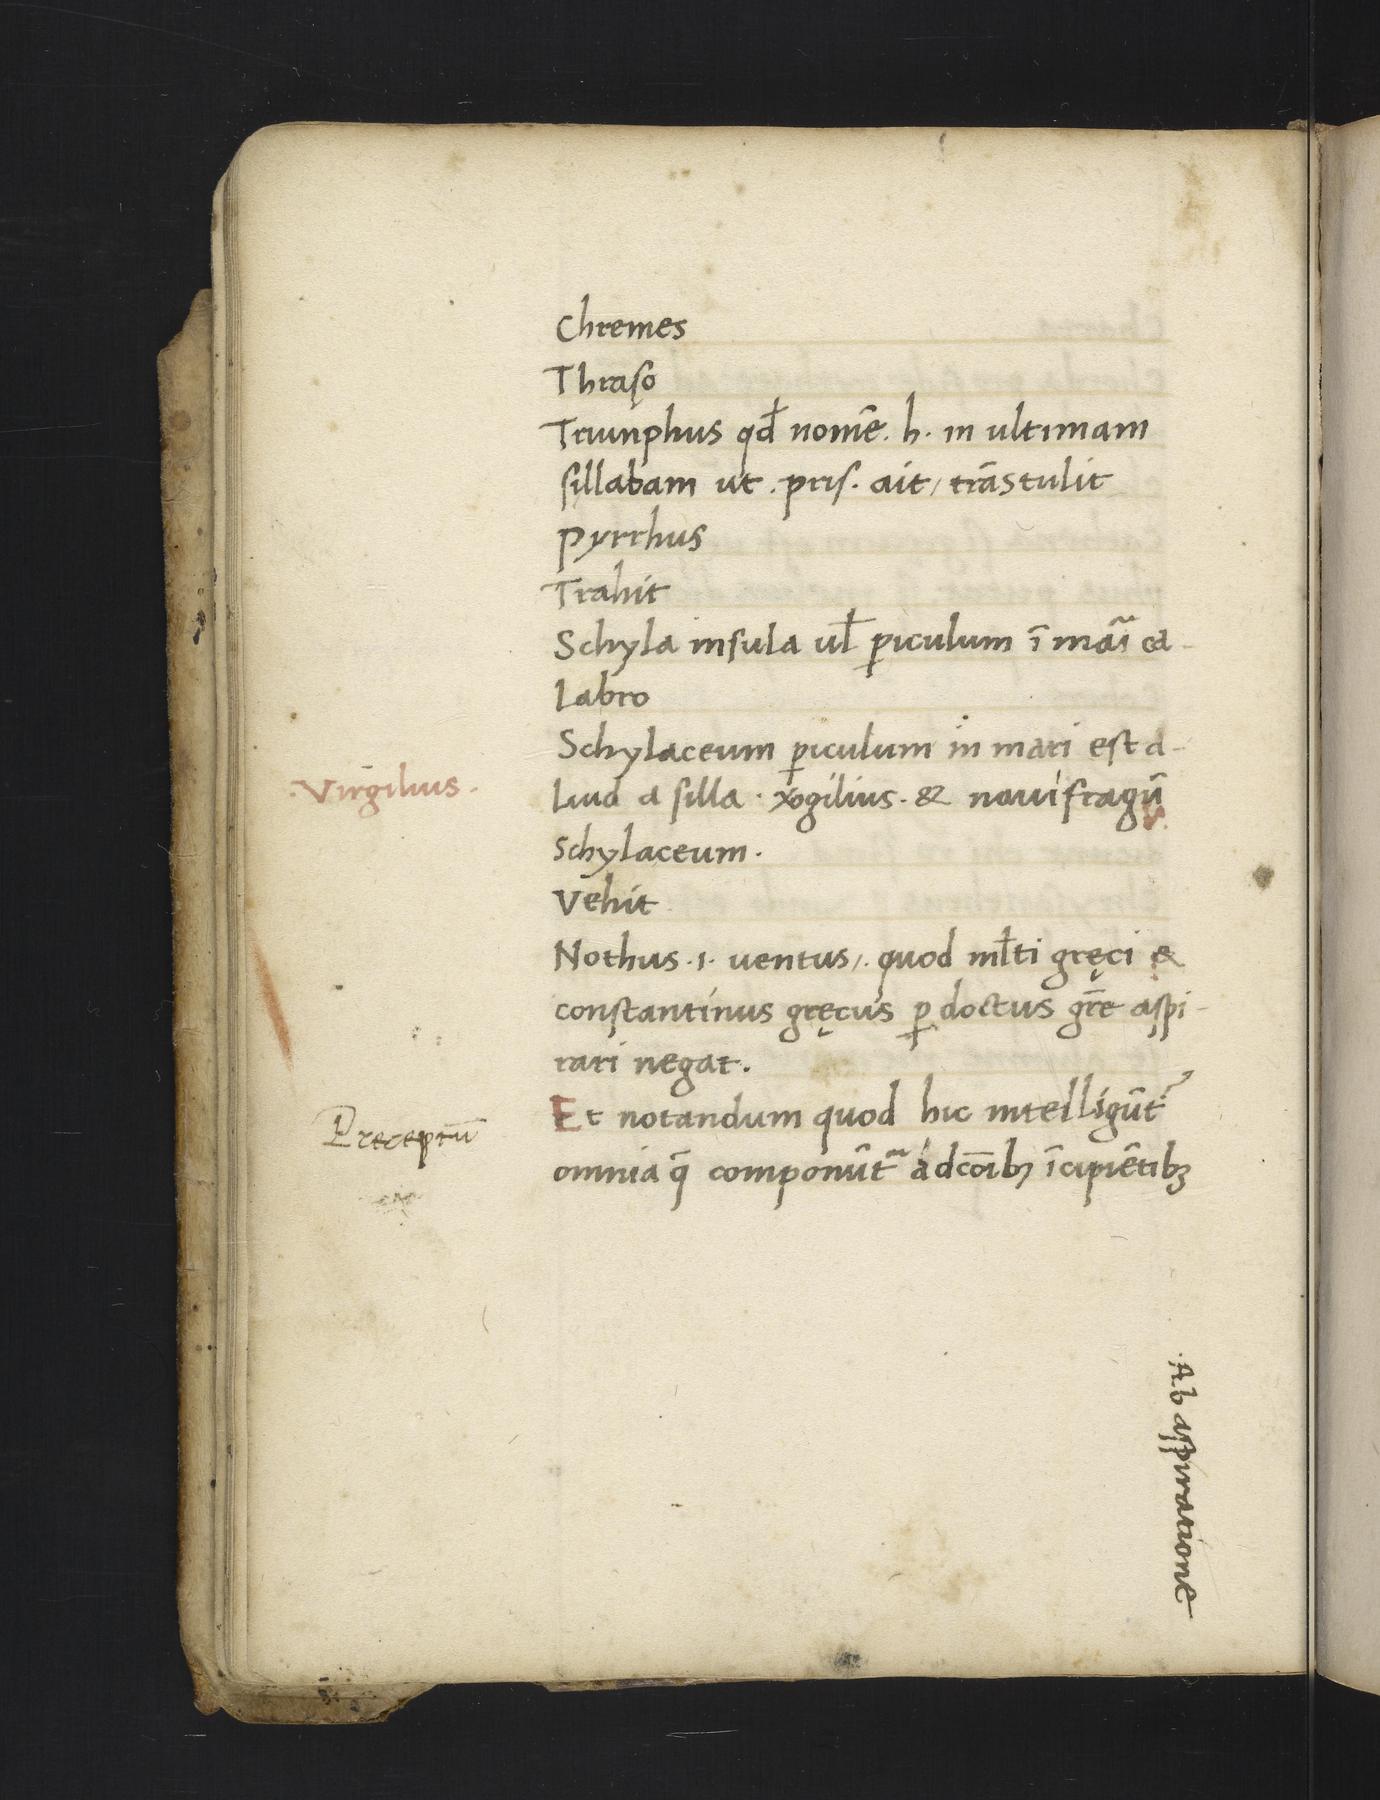 Chremes
Thraso
Triunphus qđ nomē. h. in ultimam
sillabam ut. pris. ait, trāstulit
Pyrrhus
Trahit
Schyla insula ul̄ ꝑiculum ī ca-
labro
Schylaceum ꝑiculum in mari est a-
liud a silla. &
.Virgilius.
Schylaceum.
Vehit
Nothus .i. uentus,. quod ml̄ti gręci &
constantinus gręcus ꝑ doctus aspi-
rari negat.
Et notandum quod hic intelligūt᷒
Preceptū
omnia componūt᷒ īcipiētibꝫ
.Ab aspiratione